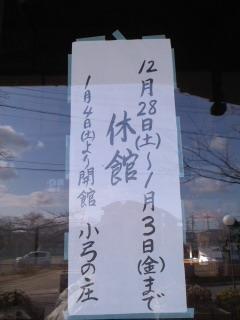 12月28日(土)〜1月3日(金)まで
休館
1月4日(土)より開館
小弓の庄